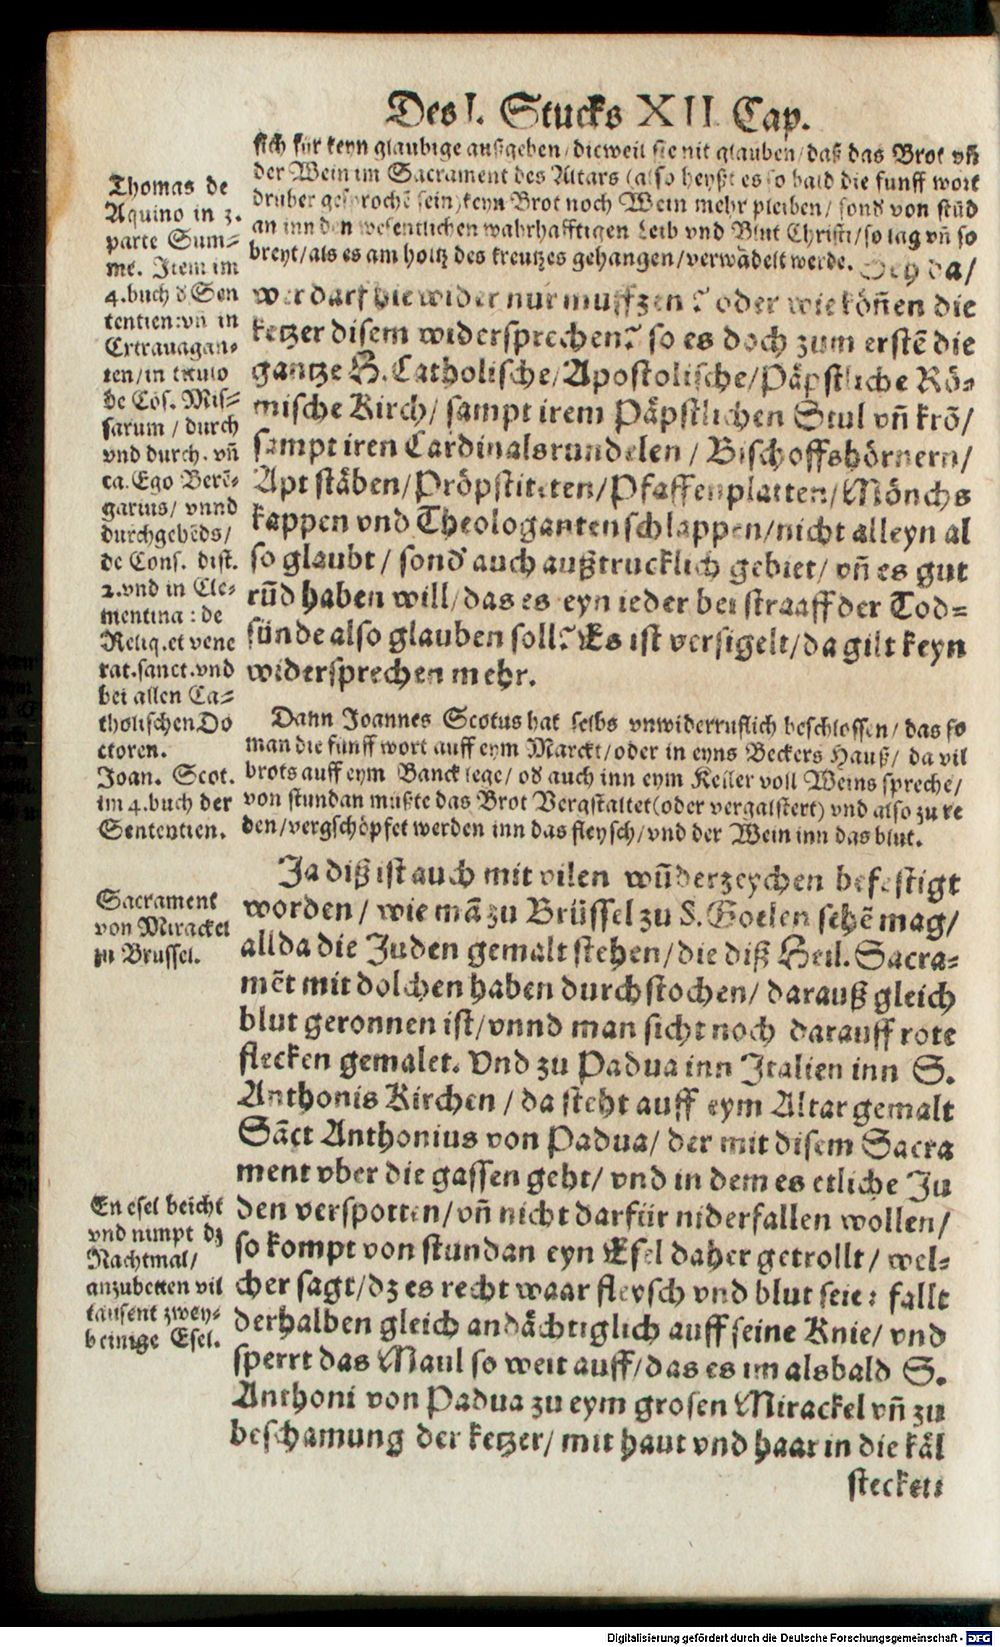 Des I. Stucks XII. Cap.
sich für keyn glaubige außgeben/dieweil sie nit glauben/daß das Brot vñ
der Wein im Sacrament des Altars (also heyßt es so bald die fünff wort
drüber gesprochē sein) keyn Brot noch Wein mehr pleiben/ sond's von stūd
an inn den wesentlichen wahrhafftigen Leib vnd Blut Christi/so lag vñ so
breyt/als es am holtz des kreutzes gehangen/verwādelt werde. Hey da/
wer darf hie wider nur muffzen? oder wie köñen die
ketzer disem widersprechen? so es doch zum erstē die
gantze H. Catholische/Apostolische/Päpstliche Rö-
mische Kirch/ sampt irem Päpstlichen Stul vñ krō/
sampt iren Cardinalsrundelen / Bischoffshörnern/
Apt stäben/Pröpstiteten/Pfaffenplatten/Mönchs
kappen vnd Theologantenschlappen/nicht alleyn al
so glaubt / sond' auch außtrucklich gebiet/ vñ es gut
rūd haben will/das es eyn ieder bei straaff der Tod-
sünde also glauben soll? Es ist versigelt/da gilt keyn
widersprechen mehr.
Thomas de
Aquino in 3.
parte Sum-
me. Item im
4.buch d' Sen
tentien:vñ in
Extrauagan-
ten/in titulo
de Cōs. Mis-
sarum / durch
vnd durch. vñ
ca. Ego Berē-
garius/ vnnd
durchgehēds/
de Cons. dist.
2.vnd in Cle-
mentina : de
Reliq.et vene
rat.sanct.vnd
bei allen Ca-
tholischen Do
ctoren.
Joan. Scot.
im 4.buch der
Sententien.
Dann Joannes Scotus hat selbs vnwiderrufflich beschlossen/ das so
man die fünff wort auff eym Marckt/oder in eyns Beckers Hauß/ da vil
brots auff eym Banck lege/ od' auch inn eym Keller voll Weins spreche/
von stundan müßte das Brot Vergstaltet(oder vergalstert) vnd also zu re
den/vergschöpfet werden inn das fleysch/vnd der Wein inn das blut.
Ja diß ist auch mit vilen wūderzeychen befestigt
worden / wie mā zu Brüssel zu S. Goelen sehē mag/
allda die Juden gemalt stehen/die diß Heil. Sacra-
mēt mit dolchen haben durchstochen/ darauß gleich
blut geronnen ist/vnnd man sicht noch darauff rote
flecken gemalet. Vnd zu Padua inn Italien inn S.
Anthonis Kirchen / da steht auff eym Altar gemalt
Sāct Anthonius von Padua/ der mit disem Sacra
ment vber die gassen geht/ vnd in dem es etliche Ju
den verspotten/vñ nicht darfür niderfallen wollen/
so kompt von stundan eyn Esel daher getrollt / wel-
cher sagt/dz es recht waar fleysch vnd blut seie: fallt
derhalben gleich andächtiglich auff seine Knie/ vnd
sperrt das Maul so weit auff/das es im alsbald S.
Anthoni von Padua zu eym grosen Mirackel vñ zu
beschamung der ketzer/ mit haut vnd haar in die käl
stecket:
Sacrament
von Mirackel
zu Brussel.
En esel beicht
vnd nimpt dz
Nachtmal/
anzubetten vil
tausent zwey-
beinige Esel.
Digitalisierung gefördert durch die Deutsche Forschungsgemeinschaft - DFG